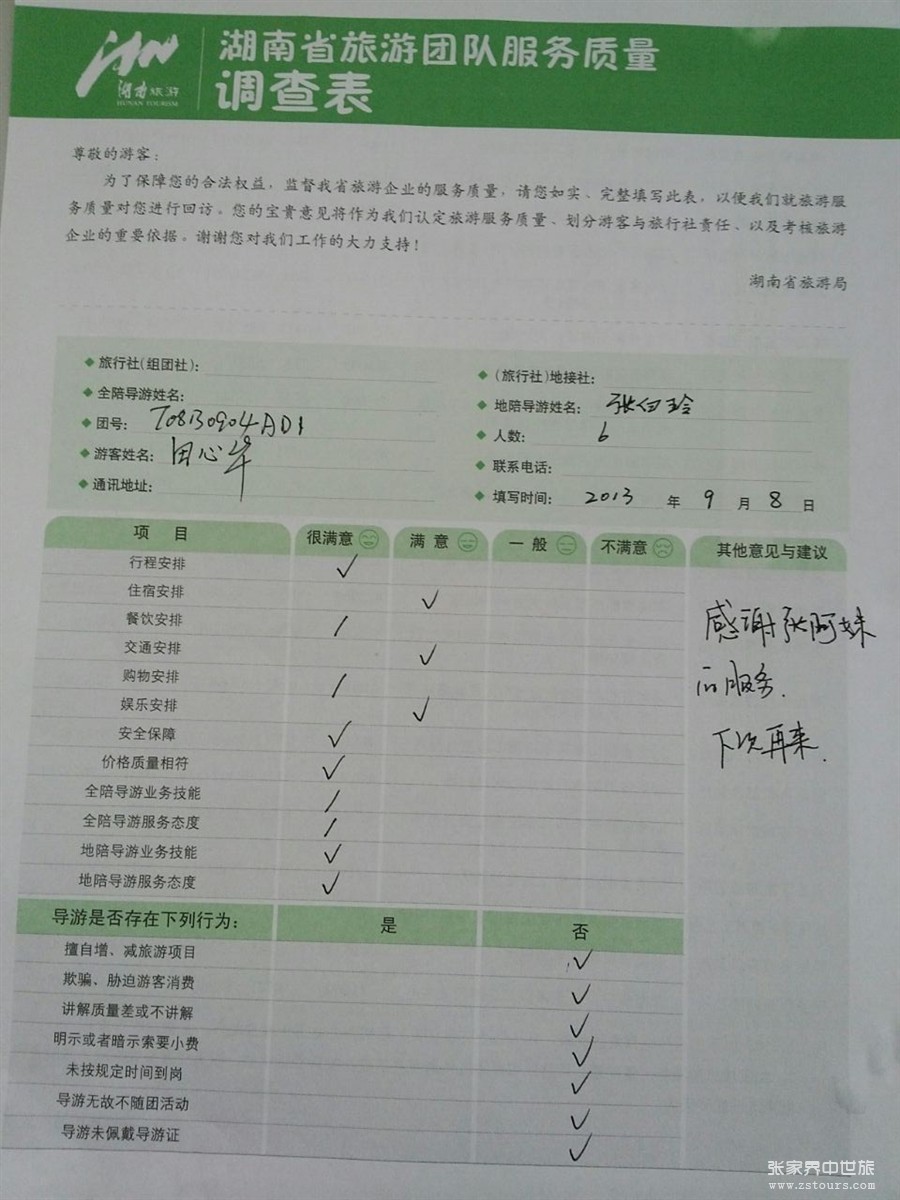 湖南旅游
HUNAN TOURISM
湖南省旅游团队服务质量
调查表
尊敬的游客：
为了保障您的合法权益，监督我省旅游企业的服务质量，请您如实、完整填写此表，以便我们就旅游服
务质量对您进行回访。您的宝贵意见将作为我们认定旅游服务质量、划分游客与旅行社责任、以及考核旅游
企业的重要依据。谢谢您对我们工作的大力支持！
湖南省旅游局
◆旅行社(组团社)：
◆(旅行社)地接社：
◆全陪导游姓名：
◆地陪导游姓名： 张
◆团号： T08130904AD1
◆人数： 6
◆游客姓名： 田心
◆联系电话：
◆通讯地址：
◆填写时间： 2013 年 9 月 8 日
项 目 很满意 满 意 一 般 不满意 其他意见与建议
行程安排 ✓
住宿安排 ✓
餐饮安排 /
交通安排 ✓
购物安排 /
娱乐安排 ✓
安全保障 ✓
价格质量相符 ✓
全陪导游业务技能 /
全陪导游服务态度 /
地陪导游业务技能 ✓
地陪导游服务态度 ✓
感谢张阿妹
的服务.
下次再来.
导游是否存在下列行为： 是 否
擅自增、减旅游项目 ✓
欺骗、胁迫游客消费 ✓
讲解质量差或不讲解 ✓
明示或者暗示索要小费 ✓
未按规定时间到岗 ✓
导游无故不随团活动 ✓
导游未佩戴导游证 ✓
张家界中世旅
www.zstours.com